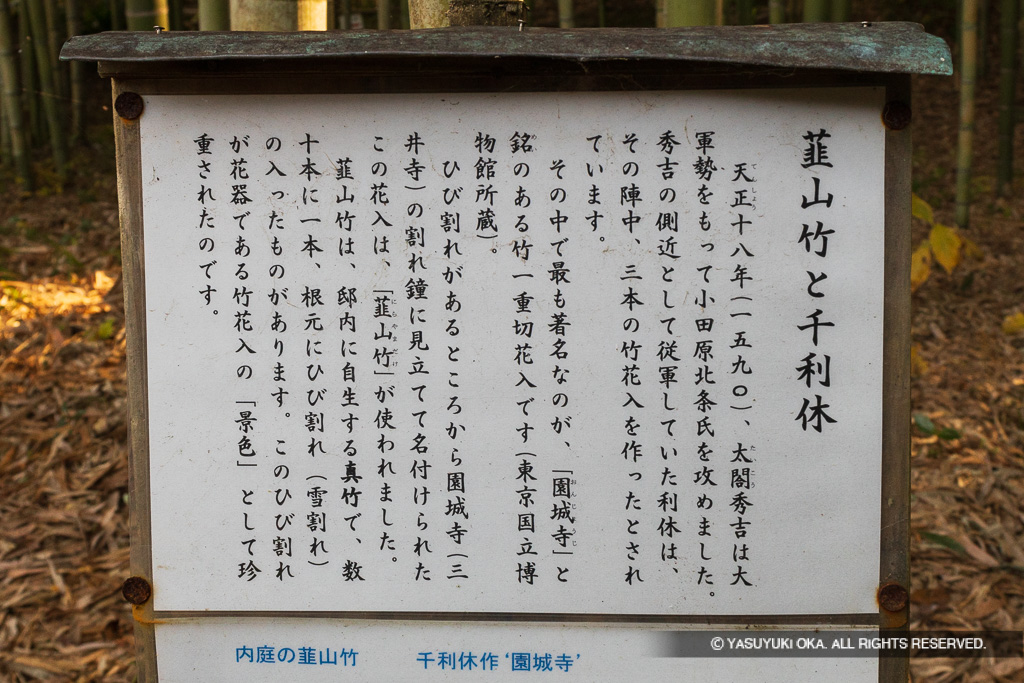 韮山竹と千利休
天正十八年(一五九〇)、太閤秀吉は大
軍勢をもって小田原北条氏を攻めました。
秀吉の側近として従軍していた利休は、
その陣中、三本の竹花入を作ったとされ
ています。
その中で最も著名なのが、「園城寺」と
銘のある竹一重切花入です(東京国立博
物館所蔵)。
ひび割れがあるところから園城寺(三
井寺)の割れ鐘に見立てて名付けられた
この花入は、「韮山竹」が使われました。
韮山竹は、邸内に自生する真竹で、数
十本に一本、根元にひび割れ(雪割れ)
の入ったものがあります。このひび割れ
が花器である竹花入の「景色」として珍
重されたのです。
内庭の韮山竹
千利休作‘園城寺’
© YASUYUKI OKA. ALL RIGHTS RESERVED.